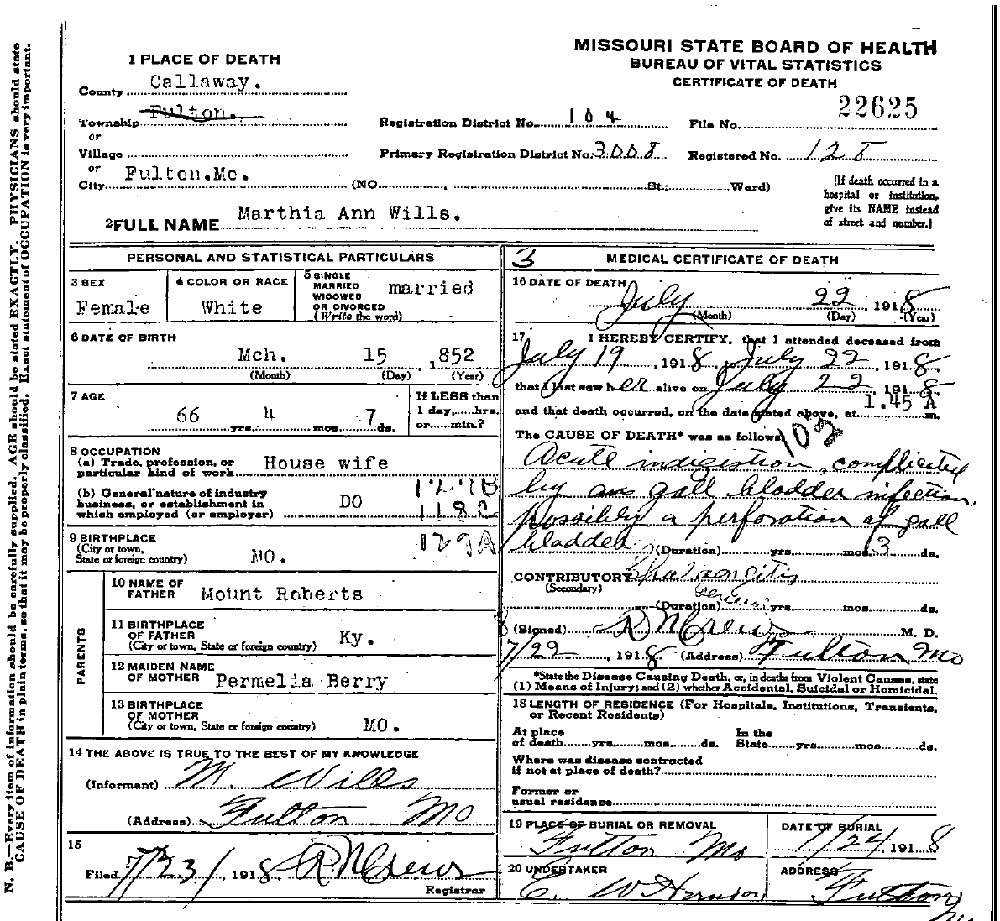 MISSOURI STATE BOARD OF HEALTH
BUREAU OF VITAL STATISTICS
CERTIFICATE OF DEATH
1 PLACE OF DEATH
County Callaway.
Township Fulton.
or
Village
or
City Fulton.Mo. (NO. , St.; Ward)
Registration District No. 104
File No. 22625
Primary Registration District No. 3008
Registered No. 128
[If death occurred in a
hospital or institution,
give its NAME instead
of street and number.]
2 FULL NAME Marthia Ann Wills.
PERSONAL AND STATISTICAL PARTICULARS
3 SEX
Female
4 COLOR OR RACE
White
5 SINGLE
MARRIED
WIDOWED
OR DIVORCED
(Write the word)
married
6 DATE OF BIRTH
Mch. 15 ,852
(Month) (Day) (Year)
7 AGE
66 yrs. 4 mos. 7 ds.
If LESS than
1 day,....hrs.
or.....min.?
8 OCCUPATION
(a) Trade, profession, or
particular kind of work House wife
(b) General nature of industry
business, or establishment in
which employed (or employer) DO
1182
129A
9 BIRTHPLACE
(City or town,
State or foreign country) MO.
PARENTS
10 NAME OF
FATHER Mount Roberts
11 BIRTHPLACE
OF FATHER
(City or town, State or foreign country) Ky.
12 MAIDEN NAME
OF MOTHER Permelia Berry
13 BIRTHPLACE
OF MOTHER
(City or town, State or foreign country) MO.
14 THE ABOVE IS TRUE TO THE BEST OF MY KNOWLEDGE
(Informant) M. Wills
(Address) Fulton Mo
15
Filed 7/23/ , 1918 RN Crews
Registrar
3 MEDICAL CERTIFICATE OF DEATH
16 DATE OF DEATH July 22 1918
(Month) (Day) (Year)
17 I HEREBY CERTIFY, that I attended deceased from
July 19 , 1918, July 22 , 1918.
that I last saw her alive on July 22 1918
and that death occurred, on the date stated above, at 1.45 A m.
The CAUSE OF DEATH* was as follows:
102
Acute indigistion complicated
by ans gall bladder infection.
possibly a perforation of gall
bladder (Duration) yrs. mos. 3 ds.
CONTRIBUTORY
(Secondary)
(Duration) yrs. mos. ds.
(Signed) RN Crews M. D.
7/22 , 1918 (Address) Fulton Mo
*State the Disease Causing Death, or, in deaths from Violent Causes, state
(1) Means of Injury; and (2) whether Accidental, Suicidal or Homicidal.
18 LENGTH OF RESIDENCE (For Hospitals, Institutions, Transients,
or Recent Residents)
At place
of death yrs. mos. ds.
In the
State yrs. mos. ds.
Where was disease contracted
if not at place of death?
Former or
usual residence
19 PLACE OF BURIAL OR REMOVAL
Fulton Mo
DATE OF BURIAL
7/24 1918
20 UNDERTAKER
ADDRESS
Fulton
Mo
N. B.—Every item of information should be carefully supplied. AGE should be stated EXACTLY. PHYSICIANS should state
CAUSE OF DEATH in plain terms, so that it may be properly classified. Exact statement of OCCUPATION is very important.